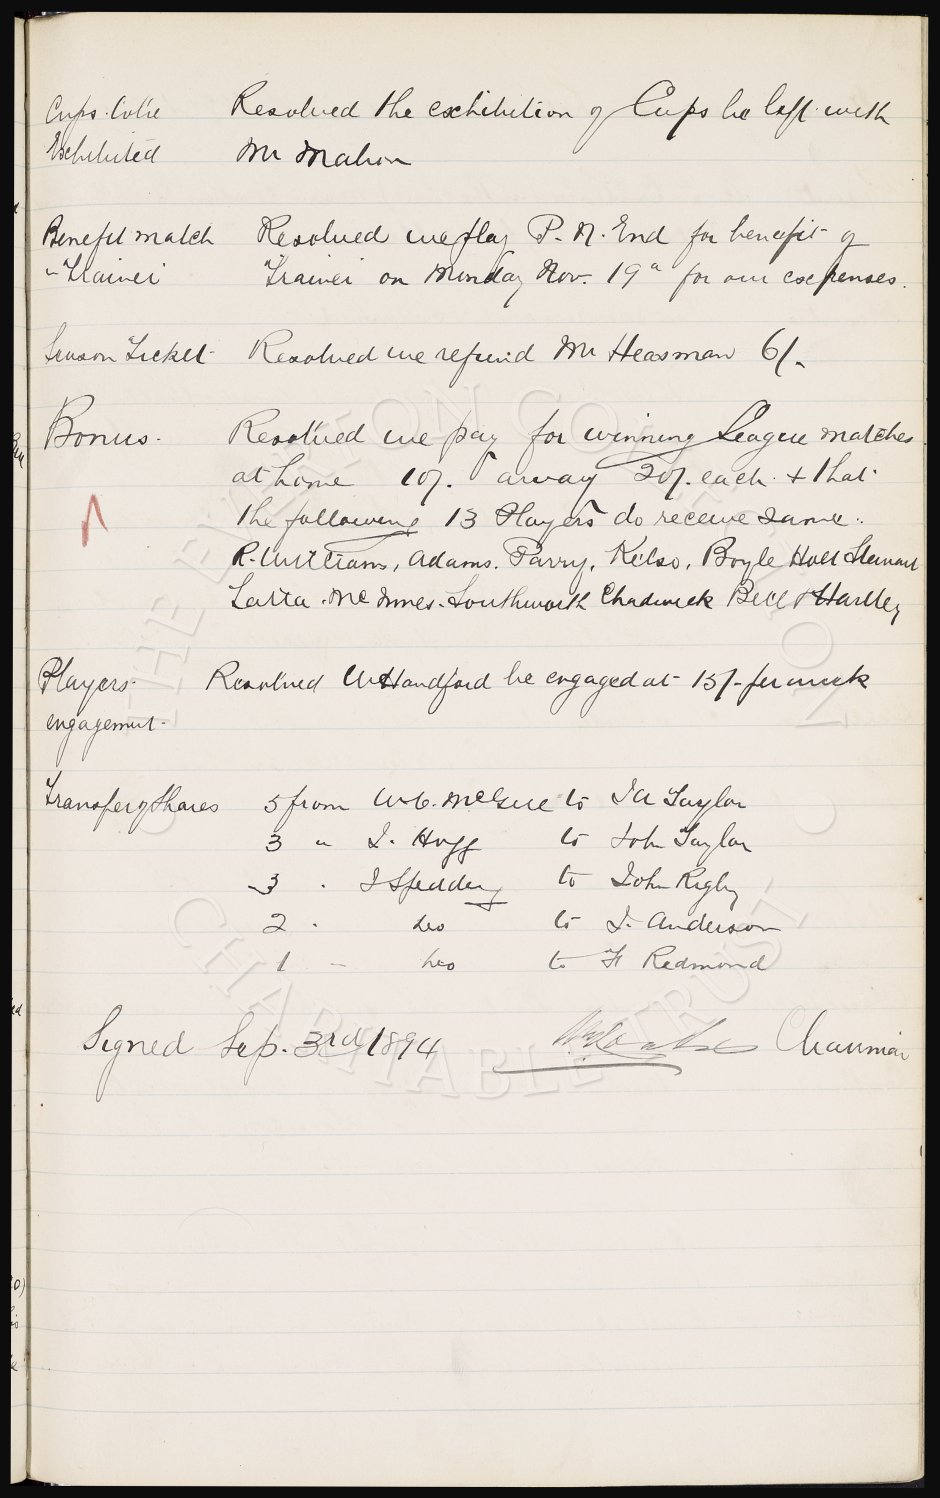 Cups to be Resolved the exhibition of Cups be left with
Exhibited Mr Mahon
Benefit match Resolved we play P. N. End for benefit of
" Trainer Trainer on Monday Nov. 19" for our expenses.
Season Ticket Resolved we refund Mr Heasman 6/-
Bonus. Resolved we pay for winning League matches
at home 10/. away 20/. each & that
the following 13 Players do receive same.
R. Williams, Adams. Parry, Kelso, Boyle Holt Stewart
Latta. McInnes. Southworth Chadwick Bell & Hartley
Players Resolved W Handford be engaged at 15/- per week
engagement.
Transfer of Shares 5 from W. C. McGill to J W Taylor
3 " J. Hogg to John Taylor
3 . J Spedding to John Rigby
2 . do to J. Anderson
1 - do to H Redmond
Signed Sep. 3rd 1894 Chairman
THE EVERTON COLLECTION
CHARITABLE TRUST